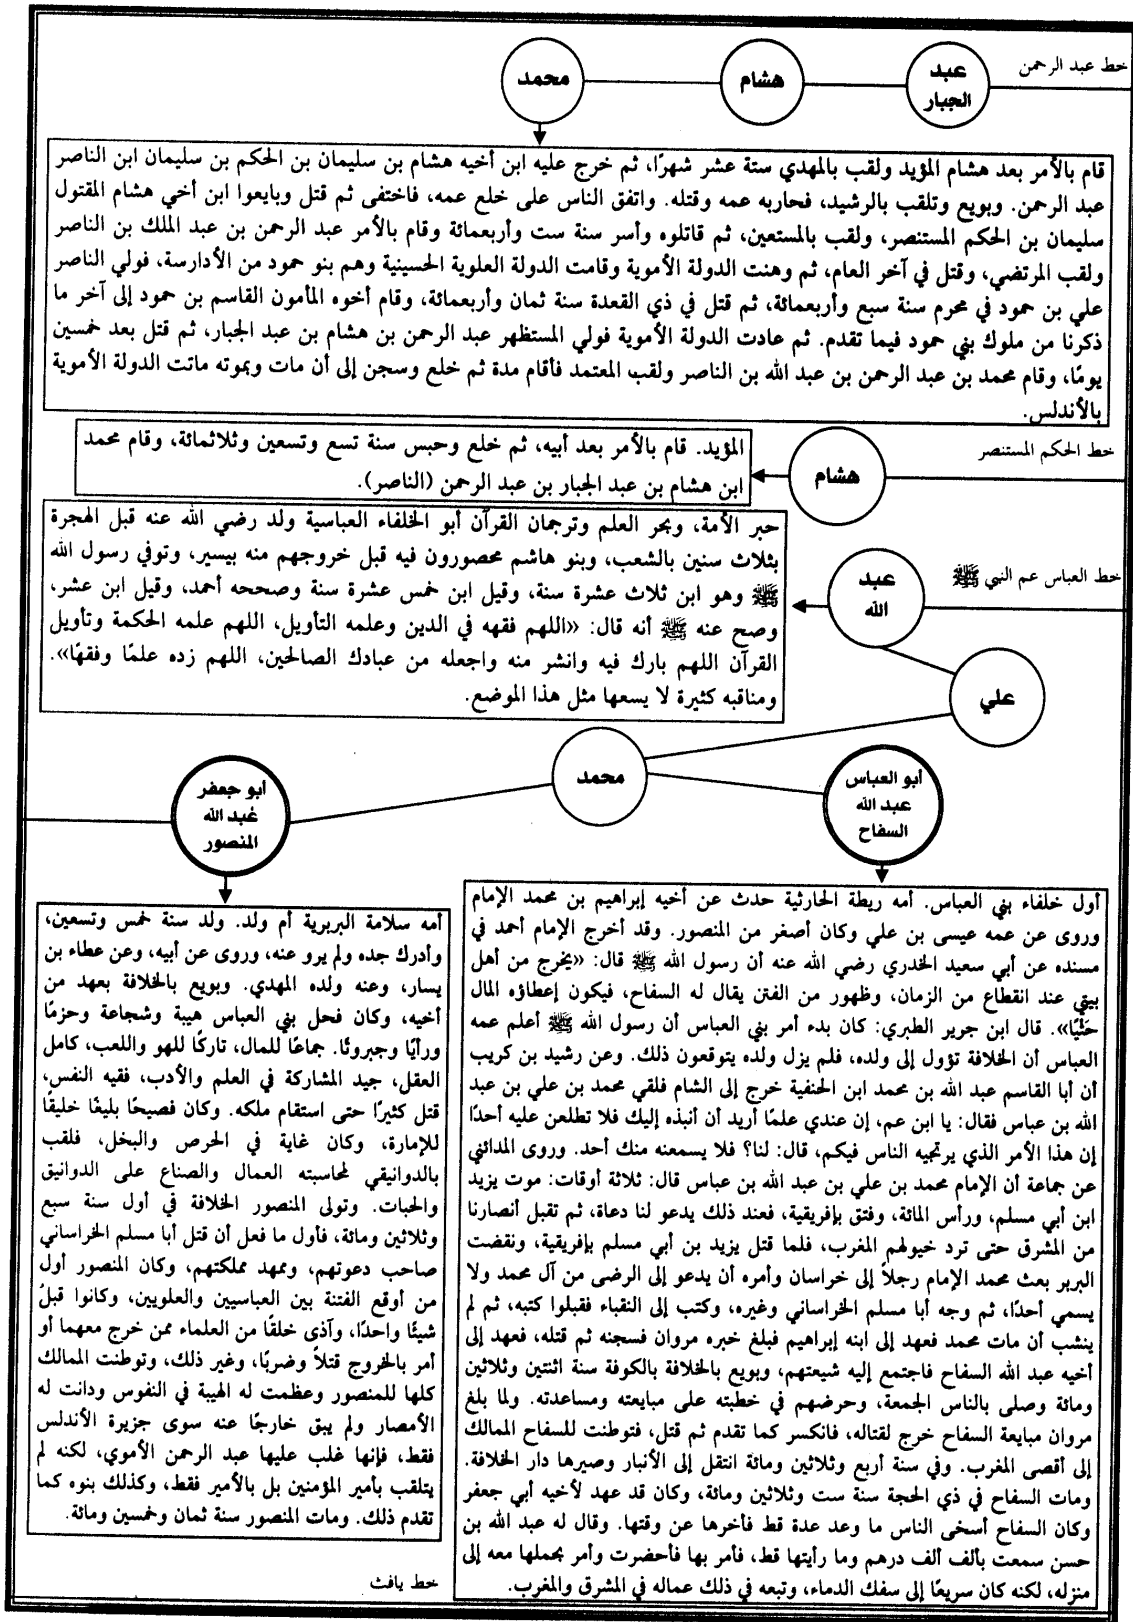 خط عبد الرحمن
عبد
الجبار
هشام
محمد
قام بالأمر بعد هشام المؤيد ولقب بالمهدي ستة عشر شهرًا، ثم خرج عليه ابن أخيه هشام بن سليمان بن الحكم بن سليمان ابن الناصر
عبد الرحمن. وبويع وتلقب بالرشيد، فحاربه عمه وقتله. واتفق الناس على خلع عمه، فاختفى ثم قتل وبايعوا ابن أخي هشام المقتول
سليمان بن الحكم المستنصر، ولقب بالمستعين، ثم قاتلوه وأسر سنة ست وأربعمائة وقام بالأمر عبد الرحمن بن عبد الملك بن الناصر
ولقب المرتضي، وقتل في آخر العام، ثم وهنت الدولة الأموية وقامت الدولة العلوية الحسينية وهم بنو حمود من الأدارسة، فولي الناصر
علي بن حمود في محرم سنة سبع وأربعمائة، ثم قتل في ذي القعدة سنة ثمان وأربعمائة، وقام أخوه المأمون القاسم بن حمود إلى آخر ما
ذكرنا من ملوك بني حمود فيما تقدم. ثم عادت الدولة الأموية فولي المستظهر عبد الرحمن بن هشام بن عبد الجبار، ثم قتل بعد خمسين
يومًا، وقام محمد بن عبد الرحمن بن عبد الله بن الناصر ولقب المعتمد فأقام مدة ثم خلع وسجن إلى أن مات وبموته ماتت الدولة الأموية
بالأندلس.
خط الحكم المستنصر
هشام
المؤيد. قام بالأمر بعد أبيه، ثم خلع وحبس سنة تسع وتسعين وثلاثمائة، وقام محمد
ابن هشام بن عبد الجبار بن عبد الرحمن (الناصر).
خط العباس عم النبي ﷺ
عبد
الله
حبر الأمة، وبحر العلم وترجمان القرآن أبو الخلفاء العباسية ولد رضي الله عنه قبل الهجرة
بثلاث سنين بالشعب، وبنو هاشم محصورون فيه قبل خروجهم منه بيسير، وتوفي رسول الله
ﷺ وهو ابن ثلاث عشرة سنة، وقيل ابن خمس عشرة سنة وصححه أحمد، وقيل ابن عشر،
وصح عنه ﷺ أنه قال: «اللهم فقهه في الدين وعلمه التأويل، اللهم علمه الحكمة وتأويل
القرآن اللهم بارك فيه وانشر منه واجعله من عبادك الصالحين، اللهم زده علمًا وفقهًا».
ومناقبه كثيرة لا يسعها مثل هذا الموضع.
علي
محمد
أبو العباس
عبد الله
السفاح
أبو جعفر
عبد الله
المنصور
أول خلفاء بني العباس. أمه ريطة الحارثية حدث عن أخيه إبراهيم بن محمد الإمام
وروى عن عمه عيسى بن علي وكان أصغر من المنصور. وقد أخرج الإمام أحمد في
مسنده عن أبي سعيد الخدري رضي الله عنه أن رسول الله ﷺ قال: «يخرج من أهل
بيتي عند انقطاع من الزمان، وظهور من الفتن يقال له السفاح، فيكون إعطاؤه المال
حَثْيًا». قال ابن جرير الطبري: كان بدء أمر بني العباس أن رسول الله ﷺ أعلم عمه
العباس أن الخلافة تؤول إلى ولده، فلم يزل ولده يتوقعون ذلك. وعن رشيد بن كريب
أن أبا القاسم عبد الله بن محمد ابن الحنفية خرج إلى الشام فلقي محمد بن علي بن عبد
الله بن عباس فقال: يا ابن عم، إن عندي علمًا أريد أن أنبذه إليك فلا تطلعن عليه أحدًا
إن هذا الأمر الذي يرتجيه الناس فيكم، قال: لنا؟ فلا يسمعنه منك أحد. وروى المدائني
عن جماعة أن الإمام محمد بن علي بن عبد الله بن عباس قال: ثلاثة أوقات: موت يزيد
ابن أبي مسلم، ورأس المائة، وفتق بإفريقية، فعند ذلك يدعو لنا دعاة، ثم تقبل أنصارنا
من المشرق حتى ترد خيولهم المغرب، فلما قتل يزيد بن أبي مسلم بإفريقية، ونقضت
البربر بعث محمد الإمام رجلاً إلى خراسان وأمره أن يدعو إلى الرضى من آل محمد ولا
يسمي أحدًا، ثم وجه أبا مسلم الخراساني وغيره، وكتب إلى النقباء فقبلوا كتبه، ثم لم
ينشب أن مات محمد فعهد إلى ابنه إبراهيم فبلغ خبره مروان فسجنه ثم قتله، فعهد إلى
أخيه عبد الله السفاح فاجتمع إليه شيعتهم، وبويع بالخلافة بالكوفة سنة اثنتين وثلاثين
ومائة وصلى بالناس الجمعة، وحرضهم في خطبته على مبايعته ومساعدته. ولما بلغ
مروان مبايعة السفاح خرج لقتاله، فانكسر كما تقدم ثم قتل، فتوطنت للسفاح الممالك
إلى أقصى المغرب. وفي سنة أربع وثلاثين ومائة انتقل إلى الأنبار وصيرها دار الخلافة.
ومات السفاح في ذي الحجة سنة ست وثلاثين ومائة، وكان قد عهد لأخيه أبي جعفر
وكان السفاح أسخى الناس ما وعد عدة قط فأخرها عن وقتها. وقال له عبد الله بن
حسن سمعت بألف ألف درهم وما رأيتها قط، فأمر بها فأحضرت وأمر بحملها معه إلى
منزله، لكنه كان سريعًا إلى سفك الدماء، وتبعه في ذلك عماله في المشرق والمغرب.
أمه سلامة البربرية أم ولد. ولد سنة خمس وتسعين،
وأدرك جده ولم يرو عنه، وروى عن أبيه، وعن عطاء بن
يسار، وعنه ولده المهدي. وبويع بالخلافة بعهد من
أخيه، وكان فحل بني العباس هيبة وشجاعة وحزمًا
ورأيًا وجبروتًا. جماعًا للمال، تاركًا للهو واللعب، كامل
العقل، جيد المشاركة في العلم والأدب، فقيه النفس،
قتل كثيرًا حتى استقام ملكه. وكان فصيحًا بليغًا خليقًا
للإمارة، وكان غاية في الحرص والبخل، فلقب
بالدوانيقي لمحاسبته العمال والصناع على الدوانيق
والحبات. وتولى المنصور الخلافة في أول سنة سبع
وثلاثين ومائة، فأول ما فعل أن قتل أبا مسلم الخراساني
صاحب دعوتهم، وممهد مملكتهم، وكان المنصور أول
من أوقع الفتنة بين العباسيين والعلويين، وكانوا قبلُ
شيئًا واحدًا، وآذى خلقًا من العلماء ممن خرج معهما أو
أمر بالخروج قتلاً وضربًا، وغير ذلك، وتوطنت الممالك
كلها للمنصور وعظمت له الهيبة في النفوس ودانت له
الأمصار ولم يبق خارجًا عنه سوى جزيرة الأندلس
فقط، فإنها غلب عليها عبد الرحمن الأموي، لكنه لم
يتلقب بأمير المؤمنين بل بالأمير فقط، وكذلك بنوه كما
تقدم ذلك. ومات المنصور سنة ثمان وخمسين ومائة.
خط يافث